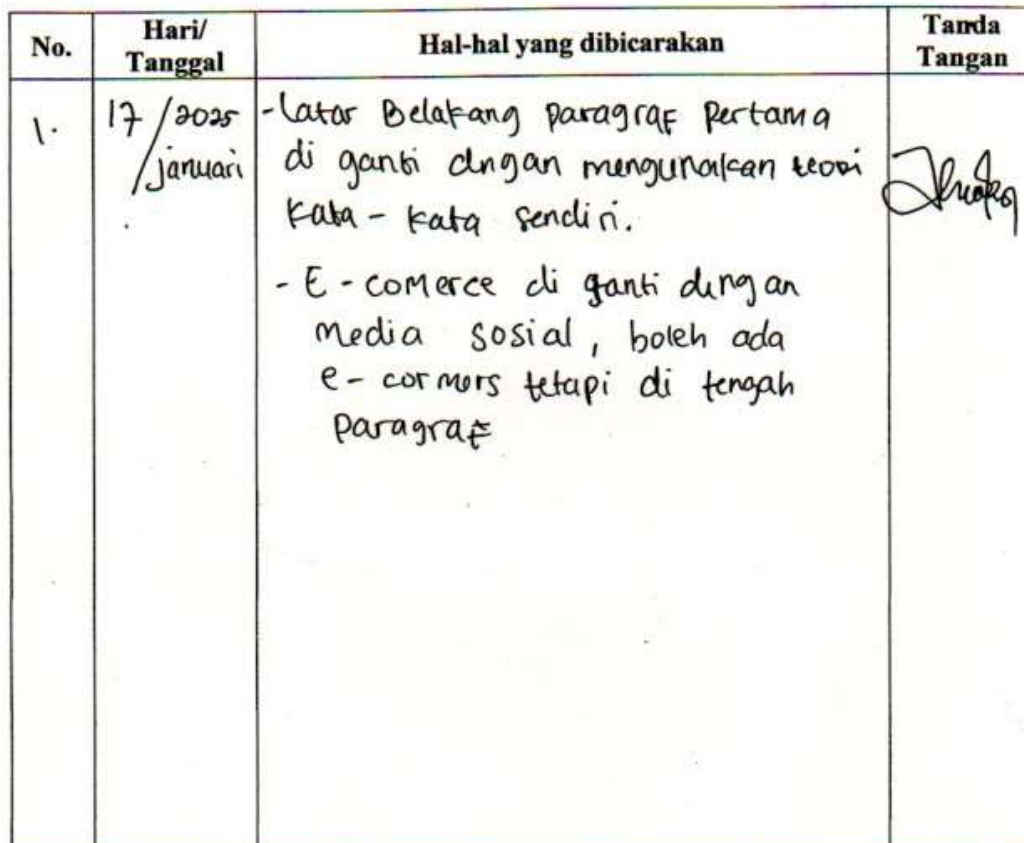 No. Hari/ Tanggal Hal-hal yang dibicarakan Tanda Tangan
1. 17/2025 januari
- Latar Belakang paragraf Pertama
di ganti dngan mengunakan teori
kata - kata sendiri.
- E - comerce di ganti dengan
media sosial, boleh ada
e - cormers tetapi di tengah
paragraf